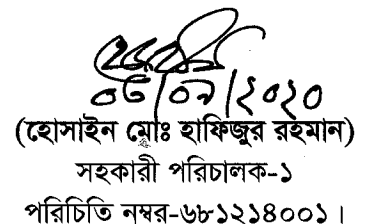 ০৮/০৯/২০২০
(হোসাইন মোঃ হাফিজুর রহমান)
সহকারী পরিচালক-১
পরিচিতি নম্বর-৬৮১২১৪০০১।